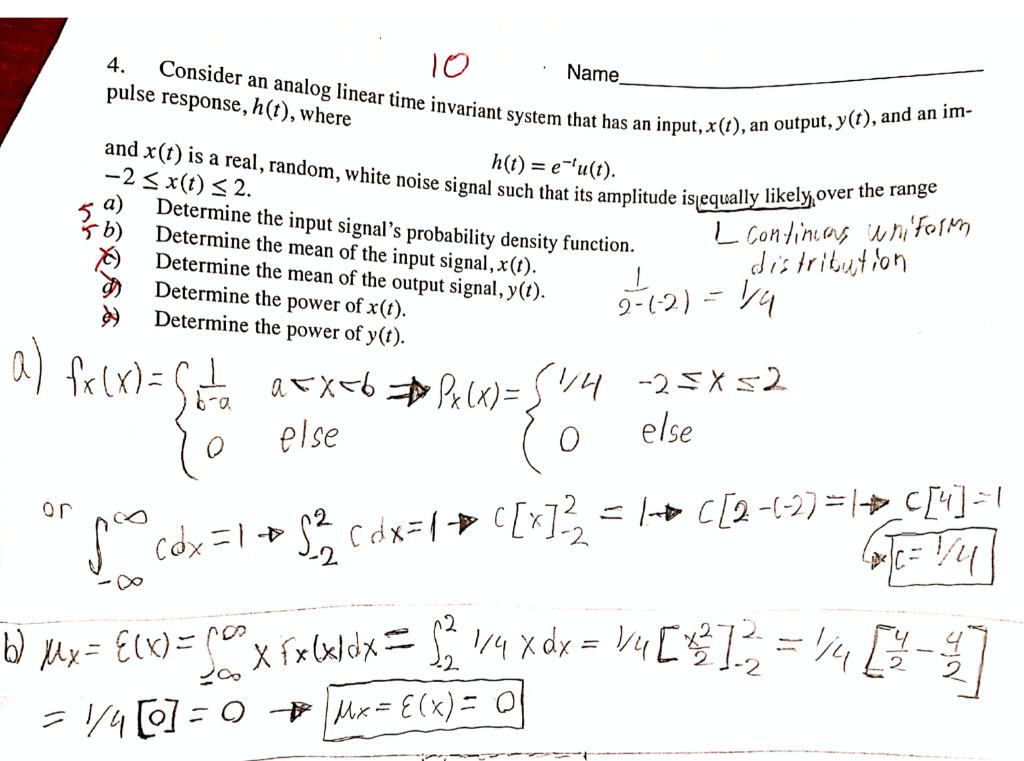 10
Name
4. Consider an analog linear time invariant system that has an input, x(t), an output, y(t), and an im-
pulse response, h(t), where
h(t) = e⁻ᵗu(t).
and x(t) is a real, random, white noise signal such that its amplitude is equally likely over the range
−2 ≤ x(t) ≤ 2.
5 a) Determine the input signal's probability density function.
5 b) Determine the mean of the input signal, x(t).
c) Determine the mean of the output signal, y(t).
d) Determine the power of x(t).
e) Determine the power of y(t).
L Continuous uniform
distribution
1/(2-(-2)) = 1/4
a) fx(x) = { 1/(b-a) a<x<b → Px(x) = { 1/4 -2 ≤ x ≤ 2
0 else 0 else
or ∫_{-∞}^{∞} cdx = 1 → ∫_{-2}^{2} cdx = 1 → c[x]_{-2}^{2} = 1 → c[2-(-2) = 1 → c[4] = 1
c = 1/4
b) μx = Ɛ(x) = ∫_{-∞}^{∞} x fx(x)dx = ∫_{-2}^{2} 1/4 x dx = 1/4 [x²/2]_{-2}^{2} = 1/4 [4/2 - 4/2]
= 1/4 [0] = 0 → μx = Ɛ(x) = 0